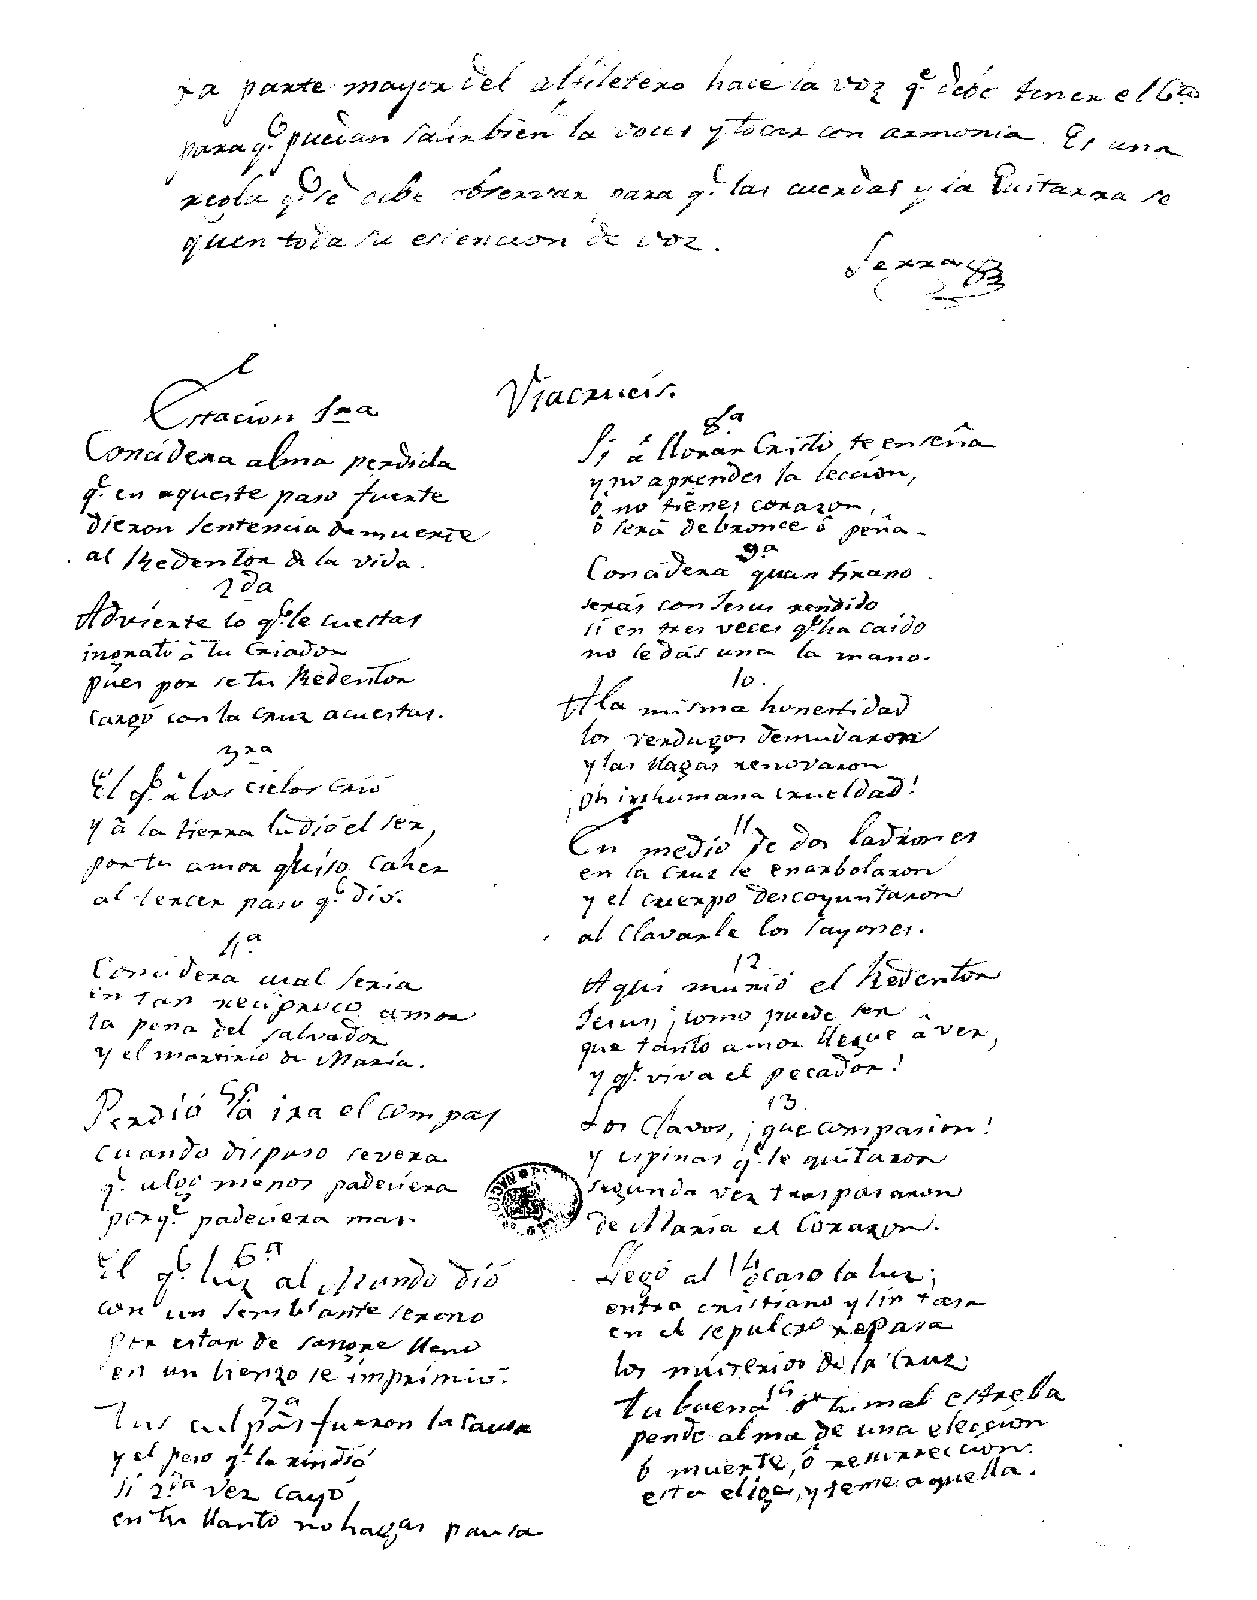 La parte mayor del alfiletero hace la voz q.e debe tener el 6.to
para q.e puedan salir bien la voces y tocar con armonia. Es una
regla q.e se debe observar para q.e las cuerdas y la Guitarra se
quen toda su estencion de voz.
Serra
Viacrucis.
Estacion 1ra
Concidera alma perdida
q.e en aqueste paso fuerte
dieron sentencia de muerte
al Redentor de la vida.
2da
Advierte lo q.e le cuestas
ingrato â tu Criador
pues por se tu Redentor
cargó con la cruz acuestas.
3ra
El q.e â los cielos crió
y â la tierra ludió el ser,
por tu amor quiso caher
al tercer paso q.e dió.
4a
Concidera cual seria
en tan reciproco amor
la pena del salvador
y el martirio de Maria.
5a
Perdió la ira el compas
cuando dispuso severa
q.e algo menos padeciera
porq.e padeciera mas.
6a
El q.e luz al Mundo dió
con un semblante sereno
por estar de sangre lleno
en un lienzo se imprimió.
7a
Tus culpas fueron la causa
y el peso q.e la rindió
si 2da vez cayó,
en tu llanto no hagas pausa
8a
Si â llorar Cristo te enseña
y no aprendes la leccion,
ô no tienes corazon,
ô será de bronce ô peña.
9a
Concidera quan tirano
serás con Jesus rendido
si en tres veces q.e ha caido
no le dás una la mano.
10.
A la misma honestidad
los verdugos demudaron
y las llagas renovaron
¡oh inhumana crueldad!
11
En medio de dos ladrones
en la cruz le enarbolaron
y el cuerpo descoyuntaron
al clavarle los sayones.
12
Aqui murió el Redentor
Jesus, ¡como puede ser
que tanto amor llegue â ver,
y q.e viva el pecador!
13
Los Clavos, ¡que compasion!
y espinas q.e le quitaron
segunda vez trasparon
de Maria el Corazon.
14
Llegó al ocaso la luz;
entra cristiano y sin tasa
en el sepulcro repasa
los misterios de la Cruz
15
Tu buena ô tu mal estrella
pende alma de una eleccion
ó muerte, ó resurreccion.
esta elige, y teme aquella.